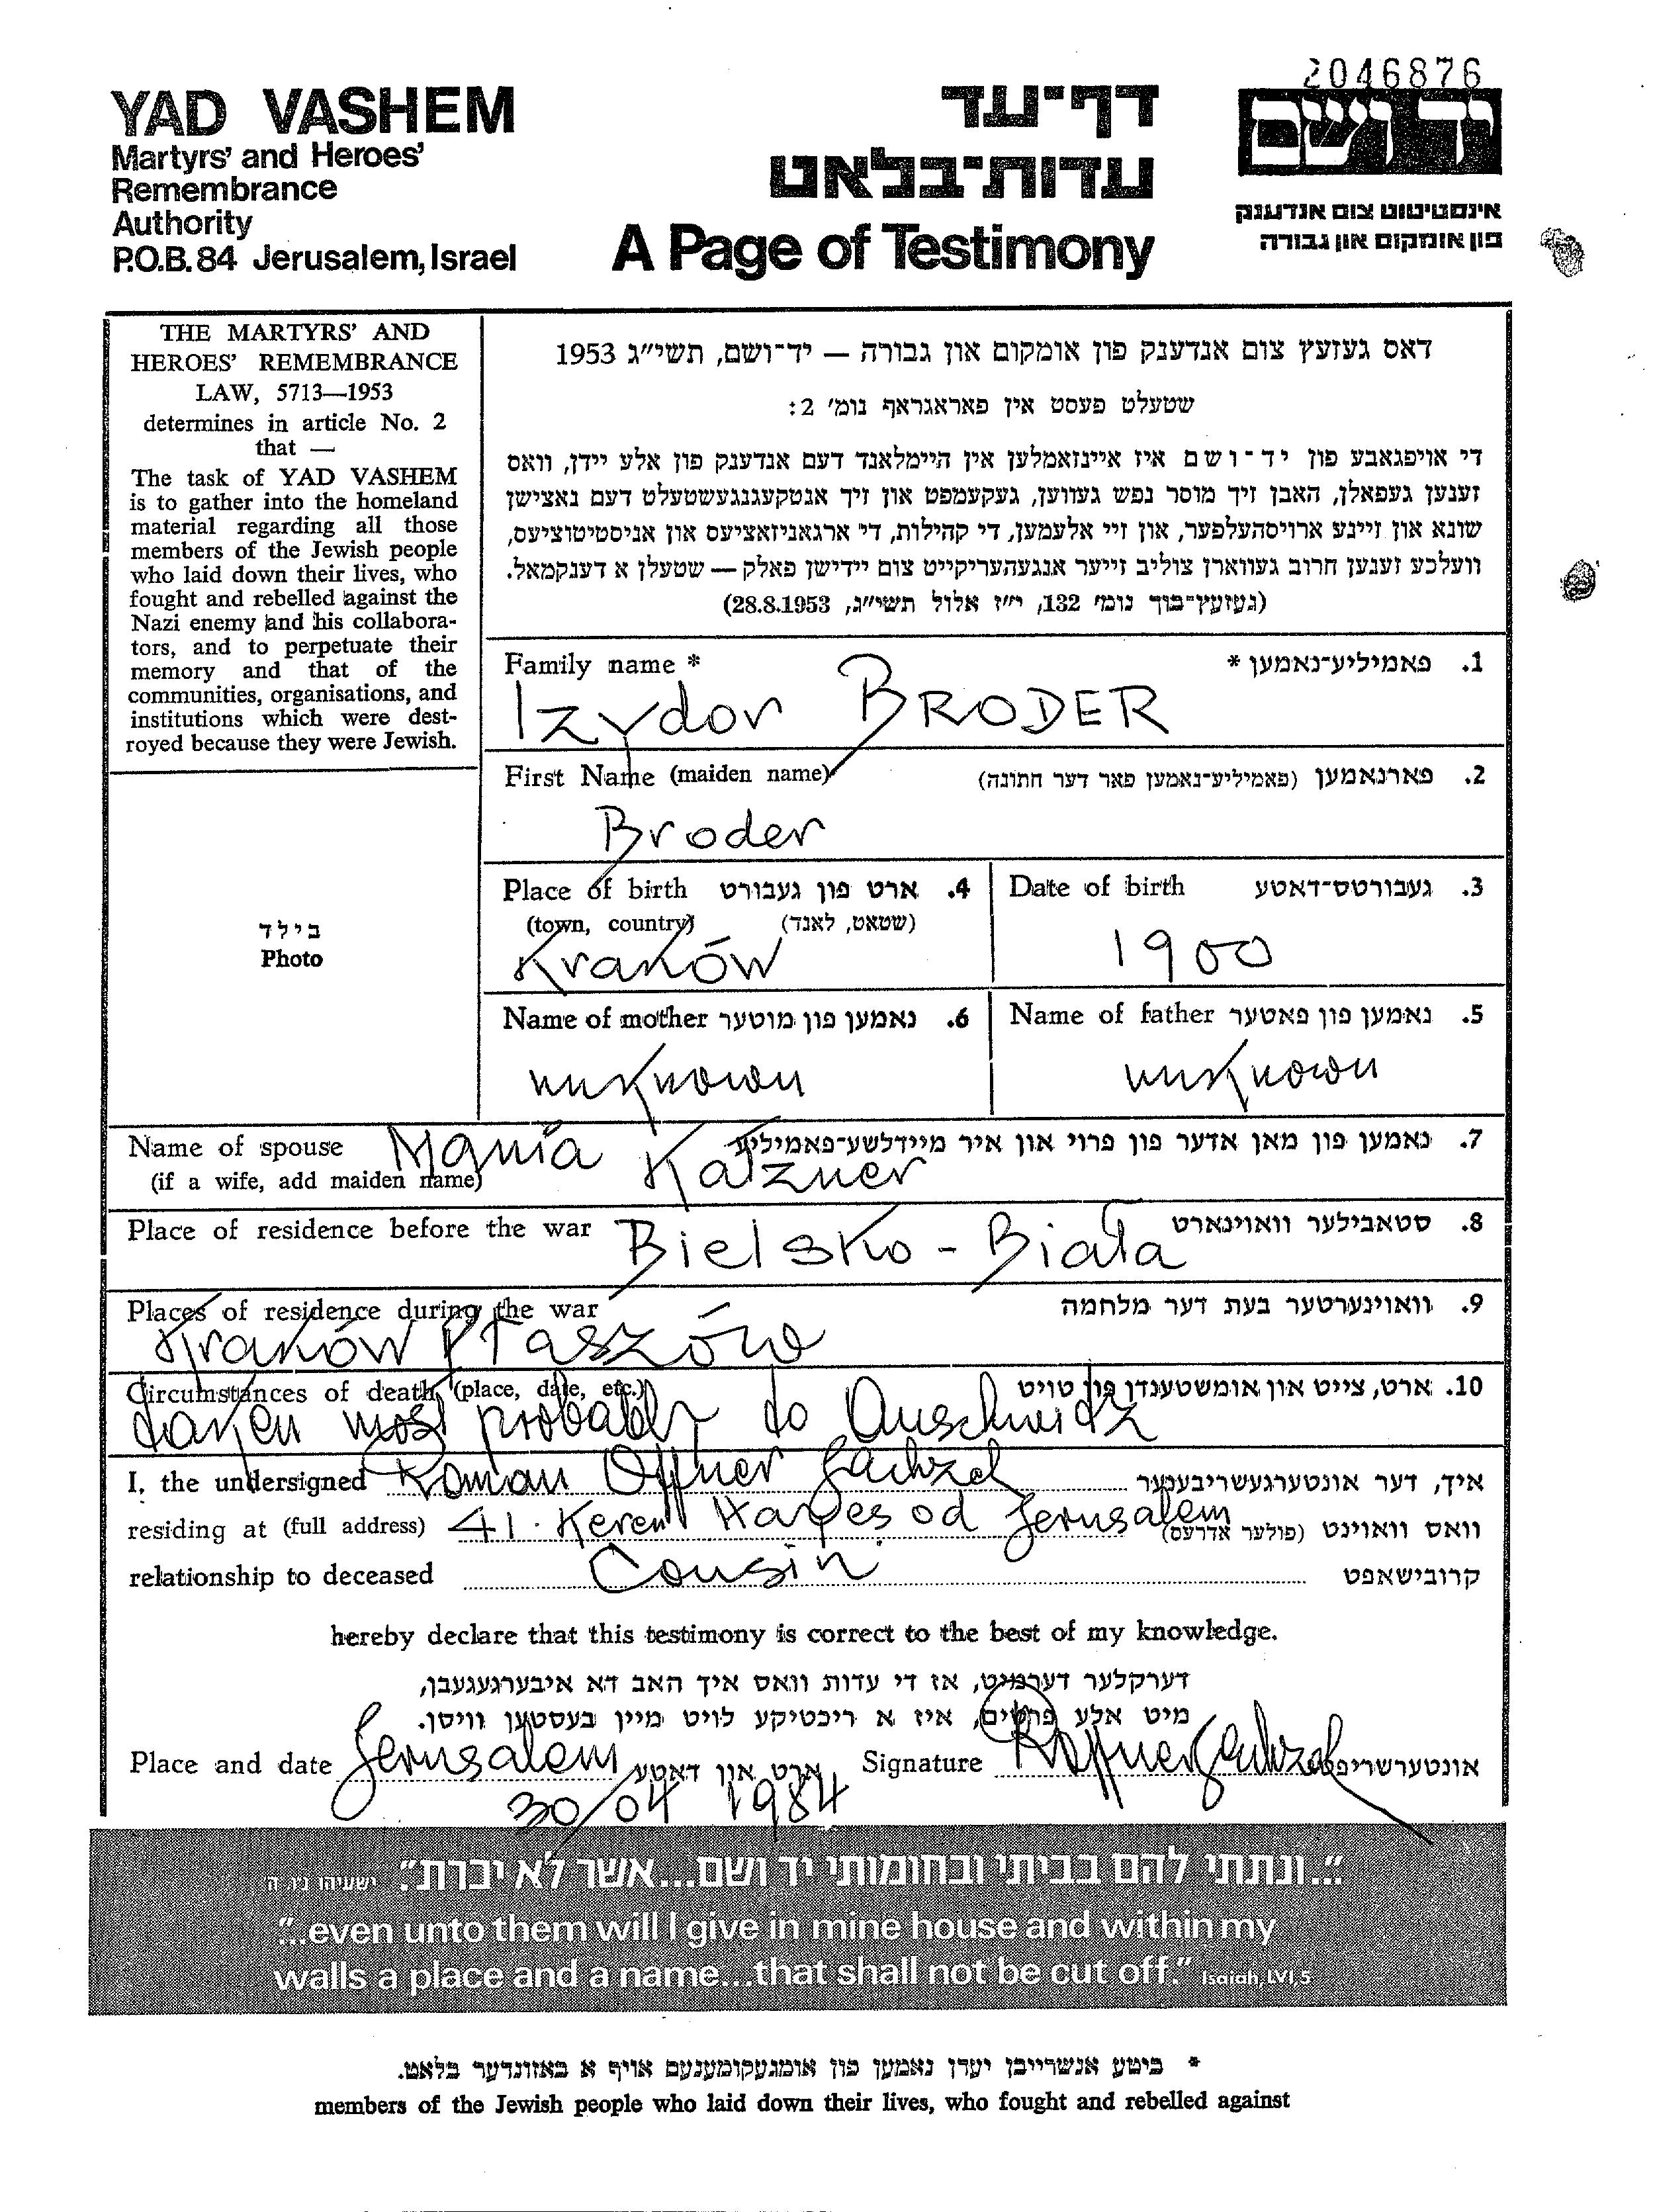 2046876
YAD VASHEM
Martyrs' and Heroes'
Remembrance
Authority
P.O.B. 84 Jerusalem, Israel
דף־עד
עדות־בלאט
A Page of Testimony
יד ושם
אינסטיטוט צום אנדענק
פון אומקום און גבורה
THE MARTYRS' AND
HEROES' REMEMBRANCE
LAW, 5713—1953
determines in article No. 2
that —
The task of YAD VASHEM
is to gather into the homeland
material regarding all those
members of the Jewish people
who laid down their lives, who
fought and rebelled against the
Nazi enemy and his collabora-
tors, and to perpetuate their
memory and that of the
communities, organisations, and
institutions which were dest-
royed because they were Jewish.
דאס געזעץ צום אנדענק פון אומקום און גבורה — יד־ושם, תשי״ג 1953
שטעלט פעסט אין פאראגראף נומ׳ 2:
די אויפגאבע פון יד־ושם איז איינזאמלען אין היימלאנד דעם אנדענק פון אלע יידן, וואס
זענען געפאלן, האבן זיך מוסר נפש געווען, געקעמפט און זיך אנטקעגנגעשטעלט דעם נאצישן
שונא און זיינע ארויסהעלפער, און זיי אלעמען, די קהילות, די ארגאניזאציעס און אניסטיטוציעס,
וועלכע זענען חרוב געווארן צוליב זייער אנגעהעריקייט צום יידישן פאלק — שטעלן א דענקמאל.
(געזעץ־בוך נומ׳ 132, י״ז אלול תשי״ג, 28.8.1953)
Family name * פאמיליע־נאמען * .1
Izydor BRODER
First Name (maiden name) פארנאמען (פאמיליע־נאמען פאר דער חתונה) .2
Broder
Place of birth ארט פון געבורט .4 Date of birth געבורטס־דאטע .3
(town, country) (שטאט, לאנד)
Kraków 1900
Name of mother נאמען פון מוטער .6 Name of father נאמען פון פאטער .5
unknown unknown
Name of spouse Mania Katzner נאמען פון מאן אדער פון פרוי און איר מיידלשע־פאמיליע .7
(if a wife, add maiden name)
Place of residence before the war Bielsko - Biała סטאבילער וואוינארט .8
Places of residence during the war וואוינערטער בעת דער מלחמה .9
Kraków Płaszów
Circumstances of death (place, date, etc.) ארט, צייט און אומשטענדן פון טויט .10
taken most probably to Auschwitz
I, the undersigned Roman Offner איך, דער אונטערגעשריבענער
residing at (full address) 41. Keren Hayesod Jerusalem וואס וואוינט (פולער אדרעס)
relationship to deceased Cousin קרובישאפט
hereby declare that this testimony is correct to the best of my knowledge.
דערקלער דערמיט, אז די עדות וואס איך האב דא איבערגעגעבן,
מיט אלע פרטים, איז א ריכטיקע לויט מיין בעסטען וויסן.
Place and date Jerusalem ארט און דאטע Signature אונטערשריפט
30/04 1984
״...ונתתי להם בביתי ובחומותי יד ושם...אשר לא יכרת״. ישעיהו נ״ו, ה׳
“...even unto them will I give in mine house and within my
walls a place and a name...that shall not be cut off.” Isaiah, LVI, 5
* ביטע אנשרייבן יעדן נאמען פון אומגעקומענעם אויף א באזונדער בלאט.
members of the Jewish people who laid down their lives, who fought and rebelled against
בילד
Photo